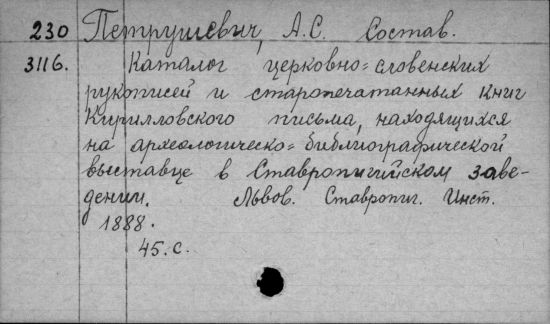 230 Петрушевич, А.С. Состав.
3116. Каталог церковно=словенских
рукописей и старопечатанных книг
Кирилловского письма, находящихся
на археологическо=библиографической
выставце в Ставропигийском заве-
дении. Львов. Ставропиг. Инст.
1888.
45.с.